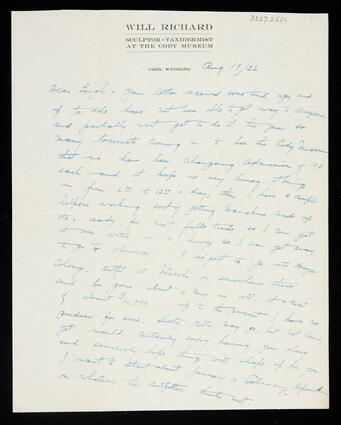 3827.2656
WILL RICHARD
SCULPTOR - TAXIDERMIST
AT THE CODY MUSEUM
CODY, WYOMING
Aug 19/22
Dear Leigh - Your letter received some time ago and
up to date have not been able to get away to
and probably wont get to do it this year so
many tourists coming in to see the Cody Museum
that we have been Charging Admission of
each - and it keeps us very busy
in from to a day, then I have a couple
helpers working
ready for next falls trade so I can get
it over with in a hurry so I can get away
to go to Africa, I expect to go into Kenya
Colony, outfit at or somewhere there
and be gone about 6 mos in all. at a cost
of about up to the present I have no
partner for sure. may go, but not sure
yet would certainly enjoy having you along
and sincerely hope things will shape up for you
I want to start about January or February, depends
on whatever the outfitter thinks best.